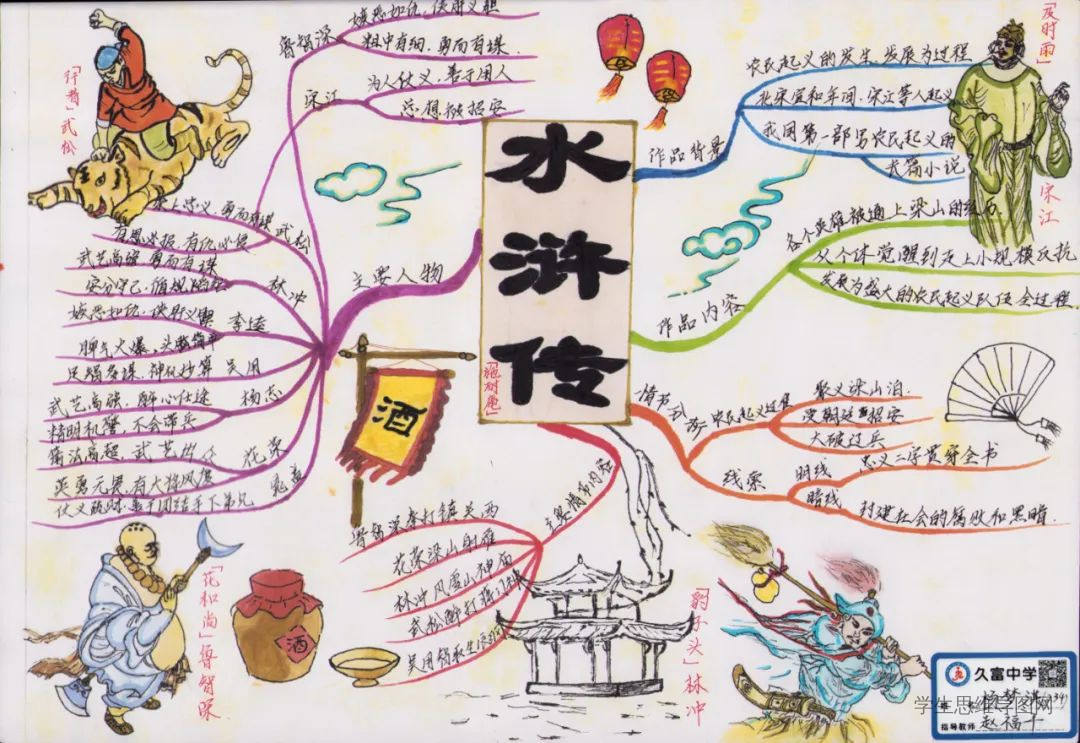 水浒传
主要人物
鲁智深
粗中有细.勇而有谋.
宋江
为人仗义.善于用人
总想被招安
武松
有恩必报.有仇必复
林冲
武艺高强 勇而有谋
安分守己.循规蹈矩
李逵
脾气火爆.头脑简单
吴用
足智多谋.神机妙算
杨志
武艺高强.醉心仕途
精明机警.不会带兵
花荣
箭法高超.武艺出众
英勇无畏.有大将风度
晁盖
仗义疏财.善于团结手下弟兄
作品背景
农民起义的发生.发展为过程
北宋宣和年间.宋江等人起义
我国第一部写农民起义的
长篇小说
作品内容
各个英雄被逼上梁山的经历
从个体觉醒到走上小规模反抗
发展为盛大的农民起义队伍全过程
农民起义过程
聚义梁山泊.
受朝廷招安
大破辽兵
线索
明线
忠义二字贯穿全书
暗线
封建社会的腐败和黑暗.
主要情节内容
鲁智深拳打镇关西
花荣梁山射雁
林冲风雪山神庙
武松醉打蒋门神
「行者」武松
「及时雨」
宋江
酒
「花和尚」鲁智深
酒
「豹子头」林冲
久富中学
指导教师
赵福十
学生思维导图网